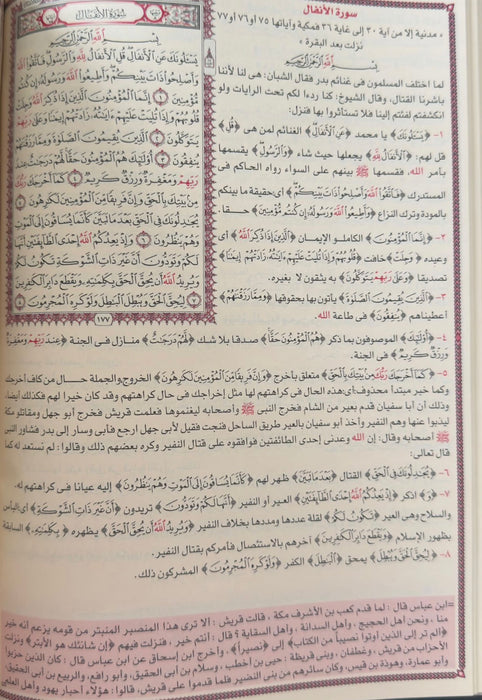 سُورَةُ الأَنفَالِ
بِسْمِ اللَّهِ الرَّحْمَٰنِ الرَّحِيمِ
يَسْـَٔلُونَكَ عَنِ ٱلْأَنفَالِ قُلِ ٱلْأَنفَالُ لِلَّهِ وَٱلرَّسُولِ فَٱتَّقُوا۟ ٱللَّهَ
وَأَصْلِحُوا۟ ذَاتَ بَيْنِكُمْ وَأَطِيعُوا۟ ٱللَّهَ وَرَسُولَهُۥٓ إِن كُنتُم
مُّؤْمِنِينَ ١ إِنَّمَا ٱلْمُؤْمِنُونَ ٱلَّذِينَ إِذَا ذُكِرَ ٱللَّهُ وَجِلَتْ
قُلُوبُهُمْ وَإِذَا تُلِيَتْ عَلَيْهِمْ ءَايَٰتُهُۥ زَادَتْهُمْ إِيمَٰنًا وَعَلَىٰ رَبِّهِمْ
يَتَوَكَّلُونَ ٢ ٱلَّذِينَ يُقِيمُونَ ٱلصَّلَوٰةَ وَمِمَّا رَزَقْنَٰهُمْ
يُنفِقُونَ ٣ أُو۟لَٰٓئِكَ هُمُ ٱلْمُؤْمِنُونَ حَقًّا لَّهُمْ دَرَجَٰتٌ عِندَ
رَبِّهِمْ وَمَغْفِرَةٌ وَرِزْقٌ كَرِيمٌ ٤ كَمَآ أَخْرَجَكَ رَبُّكَ
مِنۢ بَيْتِكَ بِٱلْحَقِّ وَإِنَّ فَرِيقًا مِّنَ ٱلْمُؤْمِنِينَ لَكَٰرِهُونَ ٥
يُجَٰدِلُونَكَ فِى ٱلْحَقِّ بَعْدَ مَا تَبَيَّنَ كَأَنَّمَا يُسَاقُونَ إِلَى ٱلْمَوْتِ
وَهُمْ يَنظُرُونَ ٦ وَإِذْ يَعِدُكُمُ ٱللَّهُ إِحْدَى ٱلطَّآئِفَتَيْنِ أَنَّهَا
لَكُمْ وَتَوَدُّونَ أَنَّ غَيْرَ ذَاتِ ٱلشَّوْكَةِ تَكُونُ لَكُمْ
وَيُرِيدُ ٱللَّهُ أَن يُحِقَّ ٱلْحَقَّ بِكَلِمَٰتِهِۦ وَيَقْطَعَ دَابِرَ
ٱلْكَٰفِرِينَ ٧ لِيُحِقَّ ٱلْحَقَّ وَيُبْطِلَ ٱلْبَٰطِلَ وَلَوْ كَرِهَ ٱلْمُجْرِمُونَ ٨
١٧٧
سورة الأنفال
« مدنية إلا من آية ٣٠ إلى غاية ٣٦ فمكية وآياتها ٧٥ أو ٧٦ أو ٧٧
نزلت بعد البقرة »
بِسْمِ اللَّهِ الرَّحْمَٰنِ الرَّحِيمِ
لما اختلف المسلمون في غنائم بدر فقال الشبان: هى لنا لأننا
باشرنا القتال، وقال الشيوخ: كنا ردءا لكم تحت الرايات ولو
انكشفتم لفئتم إلينا فلا تستأثروا بها فنزل:
١- ﴿يَسْـَٔلُونَكَ﴾ يا محمد ﴿عَنِ ٱلْأَنفَالِ﴾ الغنائم لمن هى ﴿قُلِ﴾
لهم: ﴿ٱلْأَنفَالُ لِلَّهِ﴾ يجعلها حيث شاء ﴿وَٱلرَّسُولِ﴾ يقسمها
بأمر الله. فقسمها ﷺ بينهم على السواء رواه الحاكم فى
المستدرك ﴿فَٱتَّقُوا۟ ٱللَّهَ وَأَصْلِحُوا۟ ذَاتَ بَيْنِكُمْ﴾ أى حقيقة ما بينكم
بالمودة وترك النزاع ﴿وَأَطِيعُوا۟ ٱللَّهَ وَرَسُولَهُۥٓ إِن كُنتُم مُّؤْمِنِينَ﴾ حقا.
٢- ﴿إِنَّمَا ٱلْمُؤْمِنُونَ﴾ الكاملو الإيمان ﴿ٱلَّذِينَ إِذَا ذُكِرَ ٱللَّهُ﴾ أى
وعيده ﴿وَجِلَتْ﴾ خافت ﴿قُلُوبُهُمْ وَإِذَا تُلِيَتْ عَلَيْهِمْ ءَايَٰتُهُۥ زَادَتْهُمْ إِيمَٰنًا﴾
تصديقا ﴿وَعَلَىٰ رَبِّهِمْ يَتَوَكَّلُونَ﴾ به يثقون لا بغيره.
٣- ﴿ٱلَّذِينَ يُقِيمُونَ ٱلصَّلَوٰةَ﴾ يأتون بها بحقوقها ﴿وَمِمَّا رَزَقْنَٰهُمْ﴾
أعطيناهم ﴿يُنفِقُونَ﴾ فى طاعة الله.
٤- ﴿أُو۟لَٰٓئِكَ﴾ الموصوفون بما ذكر ﴿هُمُ ٱلْمُؤْمِنُونَ حَقًّا﴾ صدقا بلا شك ﴿لَّهُمْ دَرَجَٰتٌ﴾ منازل فى الجنة ﴿عِندَ رَبِّهِمْ وَمَغْفِرَةٌ
وَرِزْقٌ كَرِيمٌ﴾ فى الجنة.
٥- ﴿كَمَآ أَخْرَجَكَ رَبُّكَ مِنۢ بَيْتِكَ بِٱلْحَقِّ﴾ متعلق بأخرج ﴿وَإِنَّ فَرِيقًا مِّنَ ٱلْمُؤْمِنِينَ لَكَٰرِهُونَ﴾ الخروج والجملة حال من كاف أخرجك
وكما خبر مبتدأ محذوف أى: هذه الحال فى كراهتهم لها مثل إخراجك فى حال كراهتهم وقد كان خيرا لهم فكذلك أيضا،
وذلك أن أبا سفيان قدم بعير من الشام فخرج النبى ﷺ وأصحابه ليغنموها فعلمت قريش فخرج أبو جهل ومقاتلو مكة
ليذبوا عنها وهم النفير وأخذ أبو سفيان بالعير طريق الساحل فنجت فقيل لأبى جهل ارجع فأبى وسار إلى بدر فشاور النبى
ﷺ أصحابه وقال: إن الله وعدنى إحدى الطائفتين فوافقوه على قتال النفير وكره بعضهم ذلك وقالوا: لم نستعد له كما
قال تعالى:
٦- ﴿يُجَٰدِلُونَكَ فِى ٱلْحَقِّ﴾ القتال ﴿بَعْدَ مَا تَبَيَّنَ﴾ ظهر لهم ﴿كَأَنَّمَا يُسَاقُونَ إِلَى ٱلْمَوْتِ وَهُمْ يَنظُرُونَ﴾ إليه عيانا فى كراهتهم له.
٧- ﴿وَ﴾ اذكر ﴿إِذْ يَعِدُكُمُ ٱللَّهُ إِحْدَى ٱلطَّآئِفَتَيْنِ﴾ العير أو النفير ﴿أَنَّهَا لَكُمْ وَتَوَدُّونَ﴾ تريدون ﴿أَنَّ غَيْرَ ذَاتِ ٱلشَّوْكَةِ﴾ أى البأس
والسلاح وهى العير ﴿تَكُونُ لَكُمْ﴾ لقلة عددها ومددها بخلاف النفير ﴿وَيُرِيدُ ٱللَّهُ أَن يُحِقَّ ٱلْحَقَّ﴾ يظهره ﴿بِكَلِمَٰتِهِۦ﴾ السابقة
بظهور الإسلام ﴿وَيَقْطَعَ دَابِرَ ٱلْكَٰفِرِينَ﴾ آخرهم بالاستئصال فأمركم بقتال النفير.
٨- ﴿لِيُحِقَّ ٱلْحَقَّ وَيُبْطِلَ﴾ يمحق ﴿ٱلْبَٰطِلَ﴾ الكفر ﴿وَلَوْ كَرِهَ ٱلْمُجْرِمُونَ﴾ المشركون ذلك.
=ابن عباس قال: لما قدم كعب بن الأشرف مكة، قالت قريش: ألا ترى هذا المنصبر المنبتر من قومه يزعم أنه خير
منا، ونحن أهل الحجيج، وأهل السدانة، وأهل السقاية؟ قال: أنتم خير، فنزلت فيهم ﴿إن شانئك هو الأبتر﴾ ونزلت
﴿ألم تر إلى الذين أوتوا نصيباً من الكتاب﴾ إلى ﴿نصيراً﴾. وأخرج ابن إسحاق عن ابن عباس قال: كان الذين حزبوا
الأحزاب من قريش، وغطفان، وبنى قريظة: حيى بن أخطب، وسلام بن أبى الحقيق، وأبو رافع، والربيع بن أبى الحقيق،
وأبو عمارة، وهوذة بن قيس، وكان سائرهم من بنى النضير فلما قدموا على قريش، قالوا: هؤلاء أحبار يهود وأهل العلم